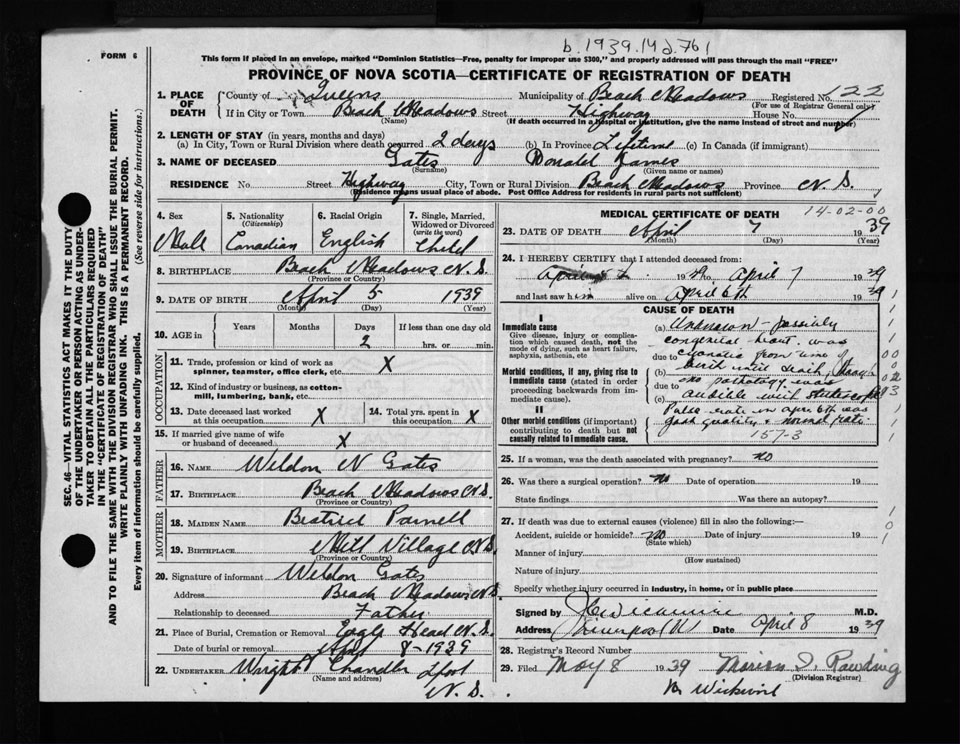 b. 1939.14d.761
FORM 6
This form if placed in an envelope, marked "Dominion Statistics—Free, penalty for improper use $300," and properly addressed will pass through the mail "FREE"
PROVINCE OF NOVA SCOTIA—CERTIFICATE OF REGISTRATION OF DEATH
1. PLACE OF DEATH
County of Queens Municipality of Beach Meadows Registered No. 122
(For use of Registrar General only)
If in City or Town Beach Meadows Street Highway House No.
(Name) (If death occurred in a hospital or institution, give the name instead of street and number)
2. LENGTH OF STAY (in years, months and days)
(a) In City, Town or Rural Division where death occurred 2 days (b) In Province Lifetime (c) In Canada (if immigrant)
3. NAME OF DECEASED Gates Donald James
(Surname) (Given name or names)
RESIDENCE No. Street Highway City, Town or Rural Division Beach Meadows Province N.S.
(Residence means usual place of abode. Post Office Address for residents in rural parts not sufficient)
4. Sex
Male
5. Nationality (Citizenship)
Canadian
6. Racial Origin
English
7. Single, Married, Widowed or Divorced (write the word)
Child
8. BIRTHPLACE Beach Meadows N.S.
(Province or Country)
9. DATE OF BIRTH April 5 1939
(Month) (Day) (Year)
10. AGE in Years Months Days 2 If less than one day old hrs. or min.
OCCUPATION
11. Trade, profession or kind of work as spinner, teamster, office clerk, etc. X
12. Kind of industry or business, as cotton-mill, lumbering, bank, etc.
13. Date deceased last worked at this occupation X
14. Total yrs. spent in this occupation X
15. If married give name of wife or husband of deceased X
FATHER
16. NAME Weldon N Gates
17. BIRTHPLACE Beach Meadows N.S.
(Province or Country)
MOTHER
18. MAIDEN NAME Beatrice Parnell
19. BIRTHPLACE Mill Village N.S.
(Province or Country)
20. Signature of informant Weldon Gates
Address Beach Meadows N.S.
Relationship to deceased Father
21. Place of Burial, Cremation or Removal Eagle Head N.S.
Date of burial or removal April 8-1939
22. UNDERTAKER Wright Chandler Lpool
(Name and address)
N.S.
MEDICAL CERTIFICATE OF DEATH
14-02-00
23. DATE OF DEATH April 7 1939
(Month) (Day) (Year)
24. I HEREBY CERTIFY that I attended deceased from:
April 1939 to April 7 1939
and last saw him alive on April 6th 1939
CAUSE OF DEATH
I
Immediate cause
Give disease, injury or complication which caused death, not the mode of dying, such as heart failure, asphyxia, asthenia, etc
Morbid conditions, if any, giving rise to immediate cause (stated in order proceeding backwards from immediate cause).
II
Other morbid conditions (if important) contributing to death but not causally related to immediate cause.
(a) Unknown - possibly
congenital heart. was
due to cyanotic from time of
(b) birth until death, though
due to no pathology was
(c) audible with stethoscope
Pulse rate on April 6th was
good quality & normal rate
157-3
25. If a woman, was the death associated with pregnancy? no
26. Was there a surgical operation? No Date of operation 19
State findings Was there an autopsy?
27. If death was due to external causes (violence) fill in also the following:—
Accident, suicide or homicide? no Date of injury 19
(State which)
Manner of injury
(How sustained)
Nature of injury
Specify whether injury occurred in industry, in home, or in public place
Signed by J C Wickwire M.D.
Address Liverpool NS Date April 8 1939
28. Registrar's Record Number
29. Filed May 8 1939 Marion I. Rawding
(Division Registrar)
Wickwire
SEC. 46—VITAL STATISTICS ACT MAKES IT THE DUTY
OF THE UNDERTAKER OR PERSON ACTING AS UNDER-
TAKER TO OBTAIN ALL THE PARTICULARS REQUIRED
IN THE "CERTIFICATE OF REGISTRATION OF DEATH"
AND TO FILE THE SAME WITH THE DIVISION REGISTRAR WHO SHALL ISSUE THE BURIAL PERMIT.
WRITE PLAINLY WITH UNFADING INK. THIS IS A PERMANENT RECORD.
Every item of information should be carefully supplied. (See reverse side for instructions.)